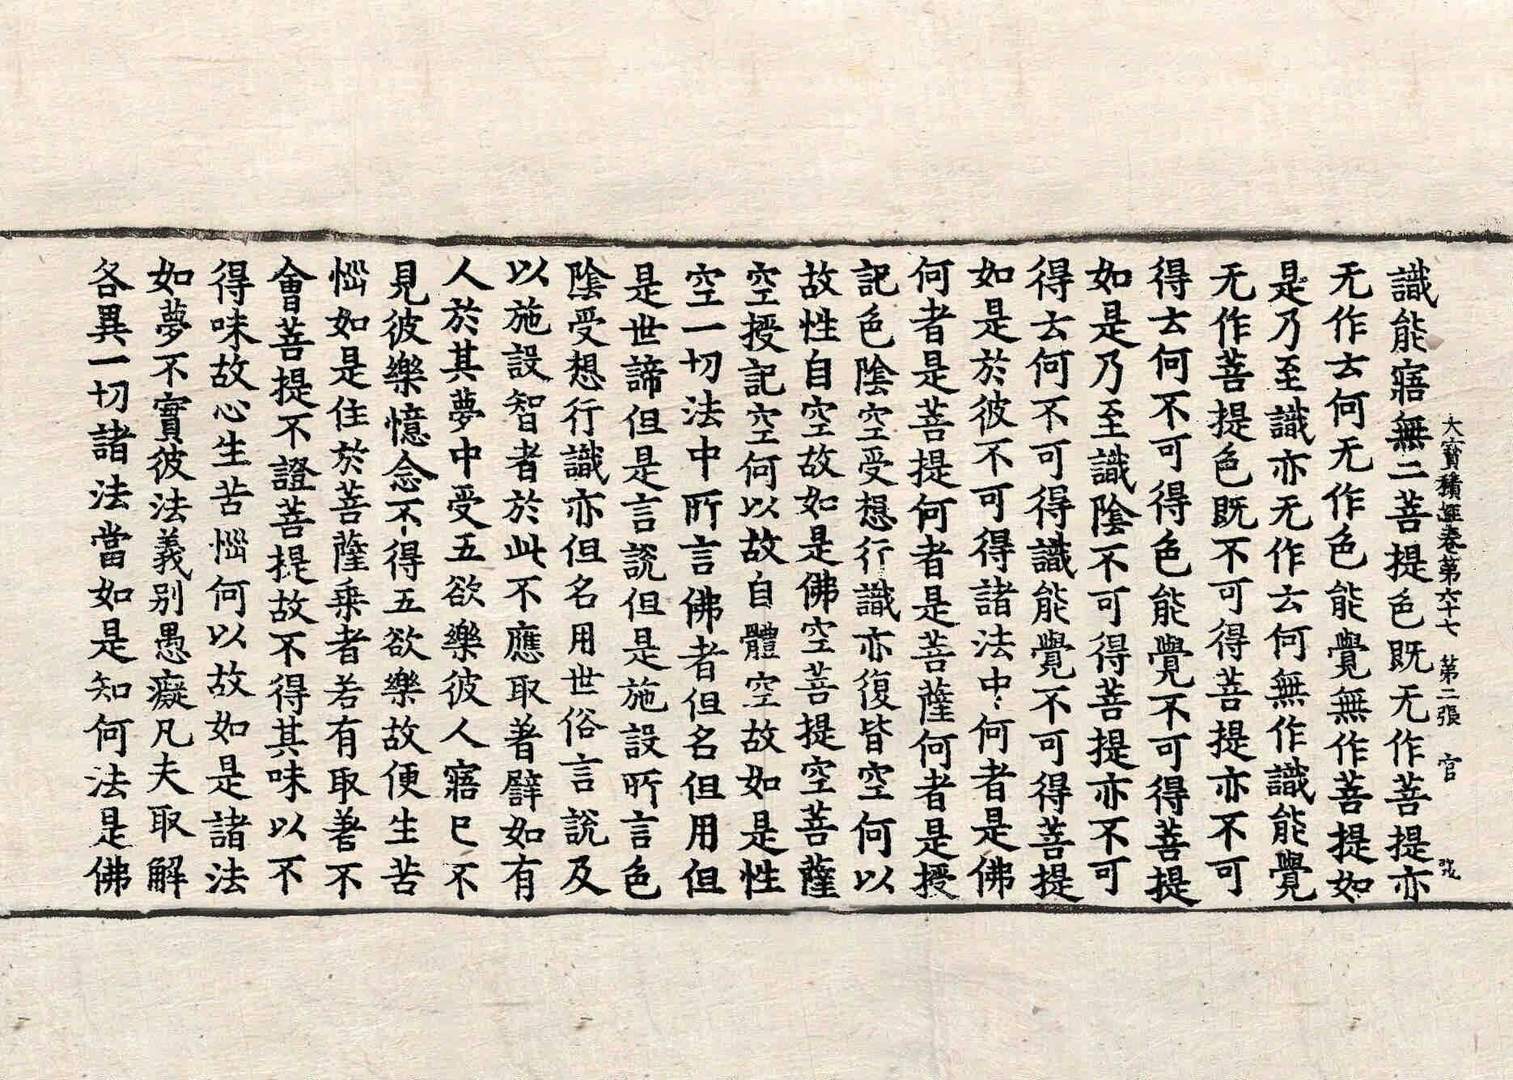 大寳積經卷第六十七 第二張 官
識能寤無二菩提色既无作菩提亦
无作云何无作色能覺無作菩提如
是乃至識亦无作云何無作識能覺
无作菩提色既不可得菩提亦不可
得云何不可得色能覺不可得菩提
如是乃至識陰不可得菩提亦不可
得云何不可得識能覺不可得菩提
如是於彼不可得諸法中何者是佛
何者是菩提何者是菩薩何者是授
記色陰空受想行識亦復皆空何以
故性自空故如是佛空菩提空菩薩
空授記空何以故自體空故如是性
空一切法中所言佛者但名但用但
是世諦但是言說但是施設所言色
陰受想行識亦但名用世俗言說及
以施設智者於此不應取著譬如有
人於其夢中受五欲樂彼人寤已不
見彼樂憶念不得五欲樂故便生苦
惱如是住於菩薩乗者若有取著不
會菩提不證菩提故不得其味以不
得味故心生苦惱何以故如是諸法
如夢不實彼法義别愚癡凡夫取解
各異一切諸法當如是知何法是佛